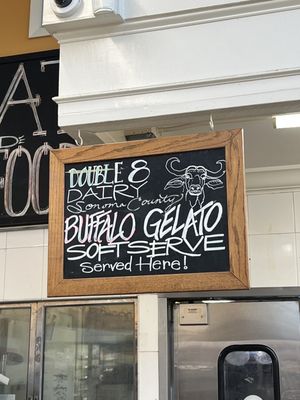 DOUBLE 8
DAIRY
Sonoma County
BUFFALO GELATO
SOFT SERVE
Served Here!